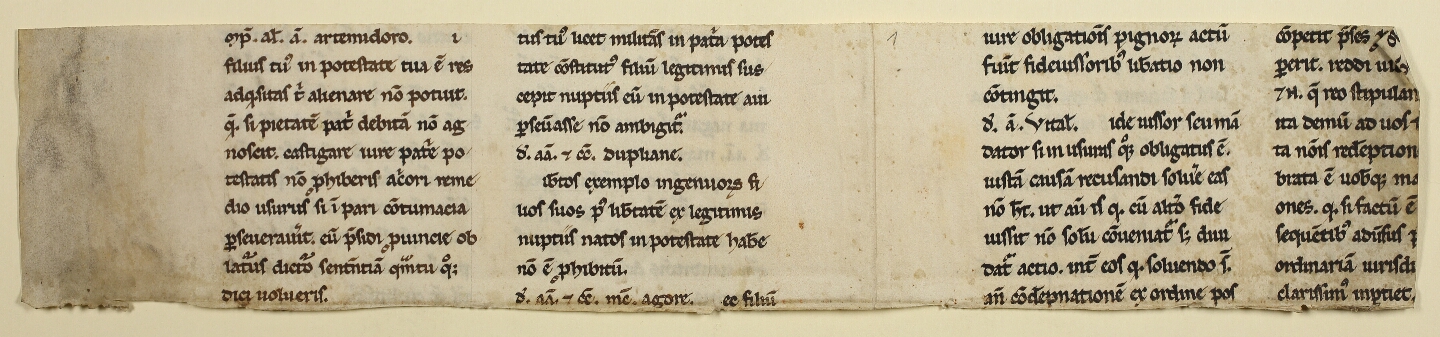 imp̄. al̄. ā. artemidoro. i
filius tuꝰ in potestate tua ē res
adqͥsitas t̄ alienare nō potuit.
q̄. si pietatē patͥ debitā nō ag
noscit. castigare iure patͥe po
testatis nō ꝓhiberis acͥori reme
dio usurus si ī pari cōtumacia
ꝑseuerauīt. eū p̄sidi ꝓuincie ob
laturus dictoͬ sentn̄tiā
dici uolueris.
tus tuꝰ licet militās in patͥa potes
tate cōstitutꝰ filiū legitimis sus
cepit nuptiis eū in potestate aui
ꝑseuāsse nō ambigitͬ.
d'. aā. ⁊ cē. dupliane.
ib̄tos exemplo ingenuoꝝ fi
lios suos pꝰ lib̄tatē ex legitimis
nuptiis natos in potestate habē
nō ē ꝓhibitū.
d'. aā. ⁊ cē. mē. agore. ec filiū
1
iure obligatiōis pignoꝝ actū
fuīt fideiussoribꝰ lib̄atio non
cōtingit.
d'. ā. Vital̄. ide iussor seu mā
dator si in usuras qͦꝫ obligatus ē.
iustā causā recusandi soluͤe eas
nō h̄t. ut aū is q. cū altoͤ fide
iussit nō solū cōueniatͬ sꝫ diui
datͬ actio. int̄ eos q. soluendo s̄.
an̄ cōdēpnationē ex ordine pos
cōpetit p̄ses
ꝑerit. reddi
⁊ n̄. q̄ reo stipulan
ita demū ad uos
ta nōis redēption
brata ē uobqꝫ
ones. q. si factū ē
sequētibꝰ adūsus
ordinariā iurisdi
clarissimꝰ